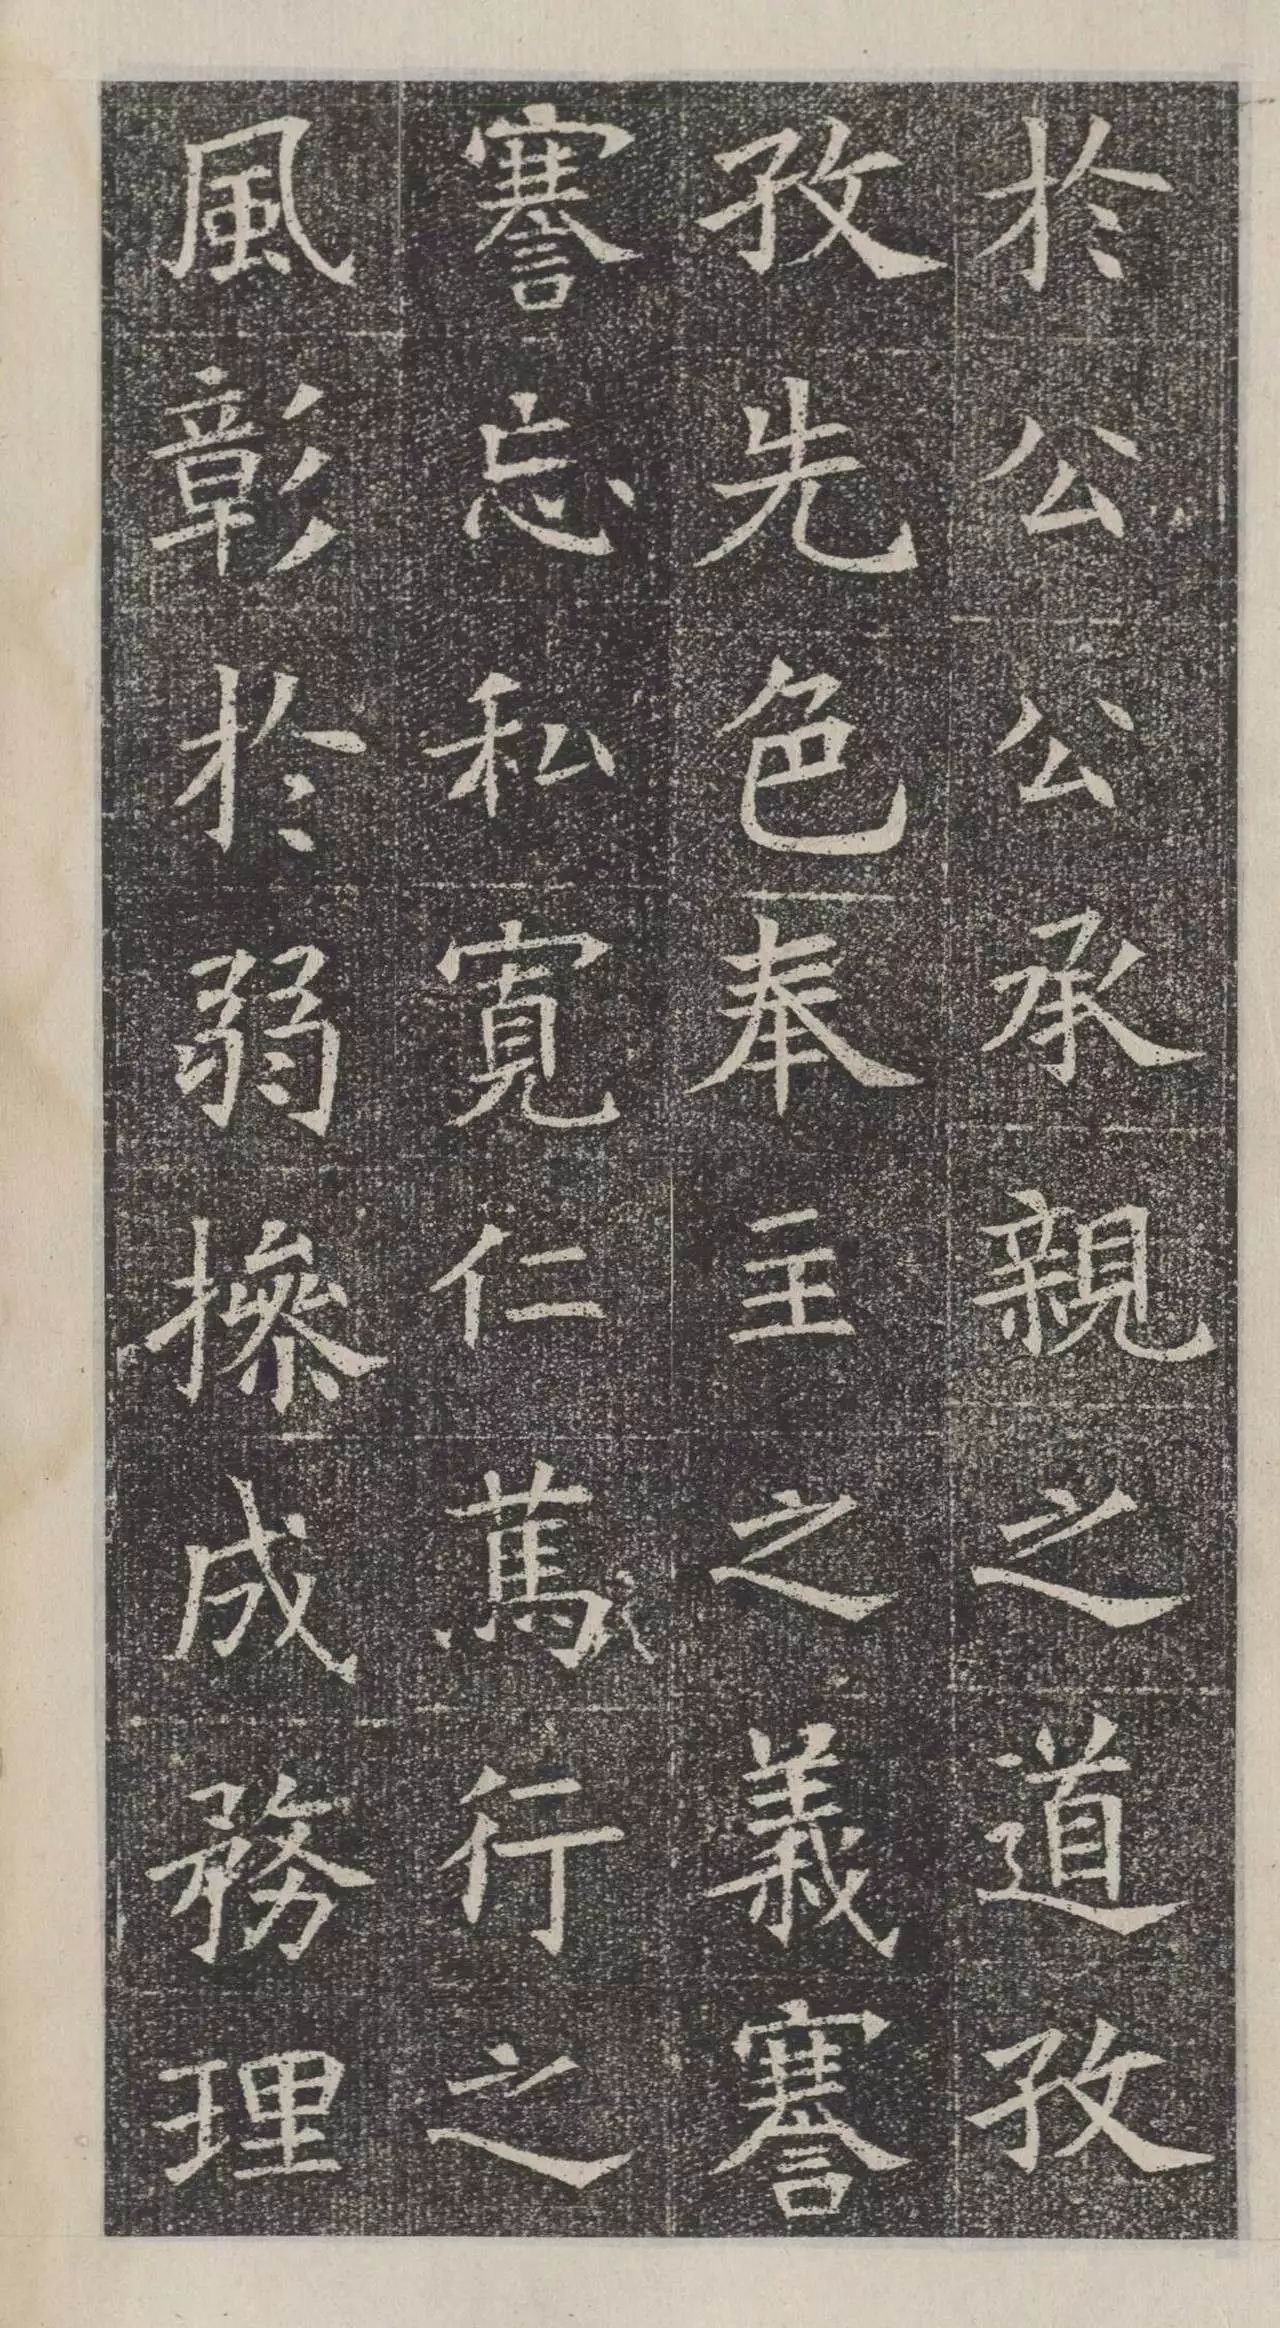 於公公承親之道孜
孜先色奉主之義謇
謇忘私寬仁萬行之
風彰於弱操成務理